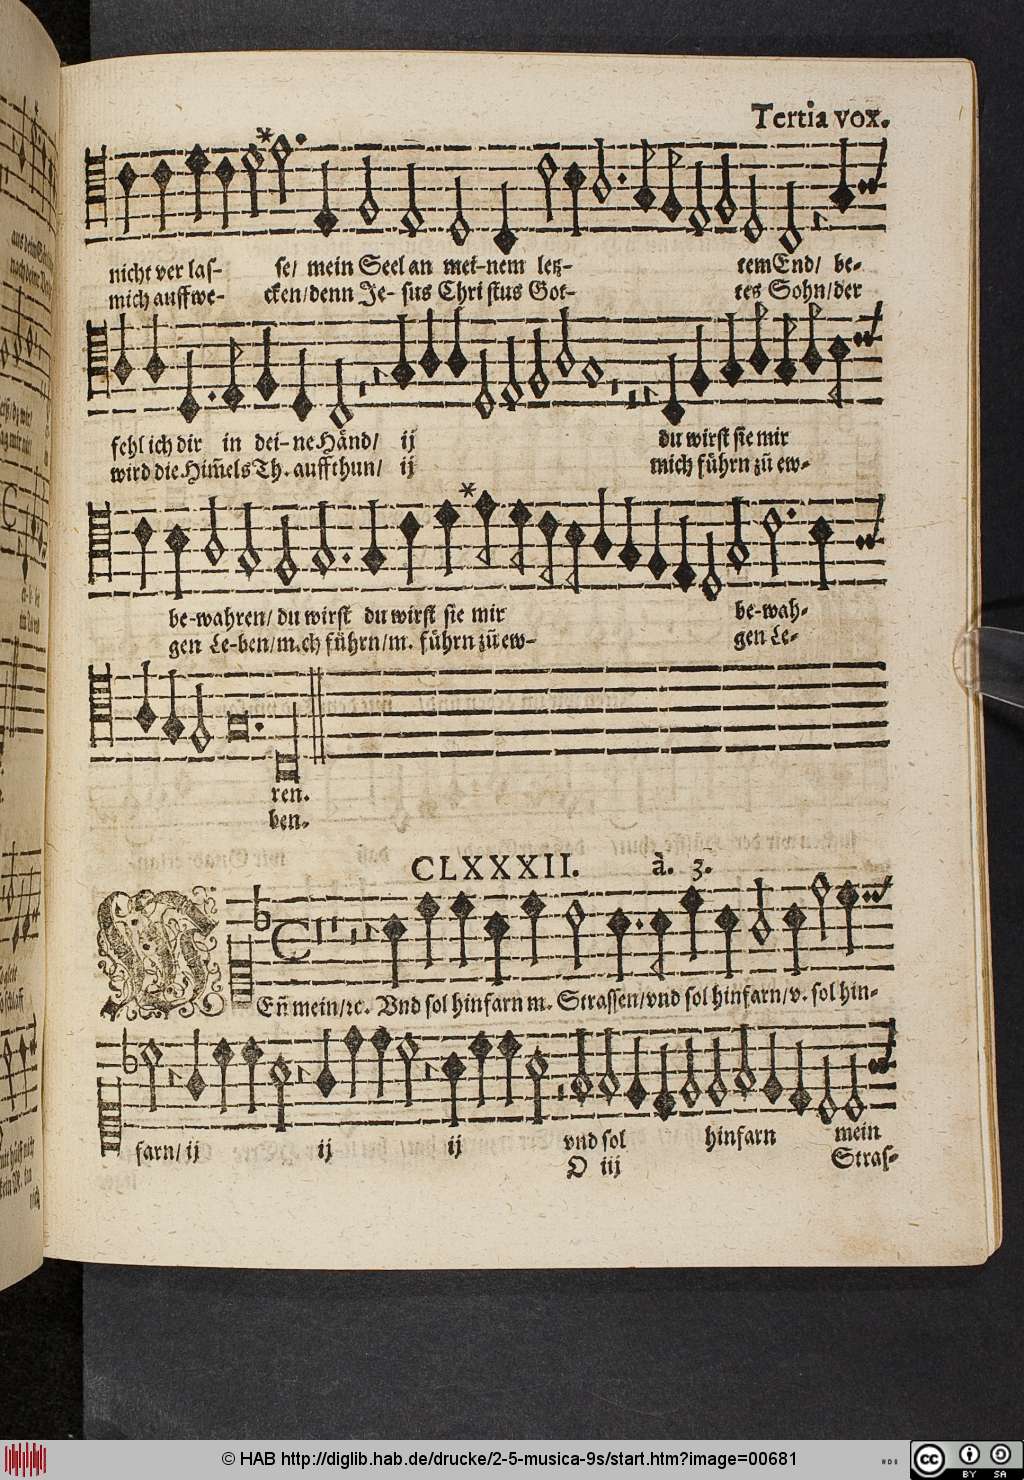 Tertia vox.
nicht ver las- se/ mein Seel an mei-nem letz- tem End/ be-
mich auffwe- cken/denn Je- sus Christus Got- tes Sohn/der
fehl ich dir in dei-ne Händ/ ij du wirst sie mir
wird die Him̃els Th. auffthun/ ij mich führn zũ ew-
be-wahren/ du wirst du wirst sie mir be-wah-
gen Le-ben/m.ch führn/m. führn zũ ew- gen Le-
ren.
ben.
CLXXXII. à. 3.
WEñ mein/ꝛc. Vnd sol hinfarn m. Strassen/vnd sol hinfarn/v. sol hin-
farn/ ij ij ij vnd sol hinfarn mein
O iij Stras-
© HAB http://diglib.hab.de/drucke/2-5-musica-9s/start.htm?image=00681
cc BY SA